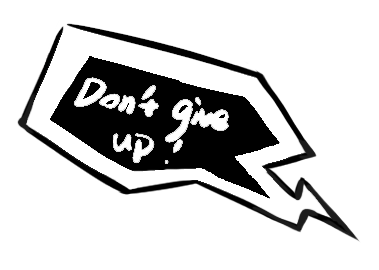 Don't give
up!